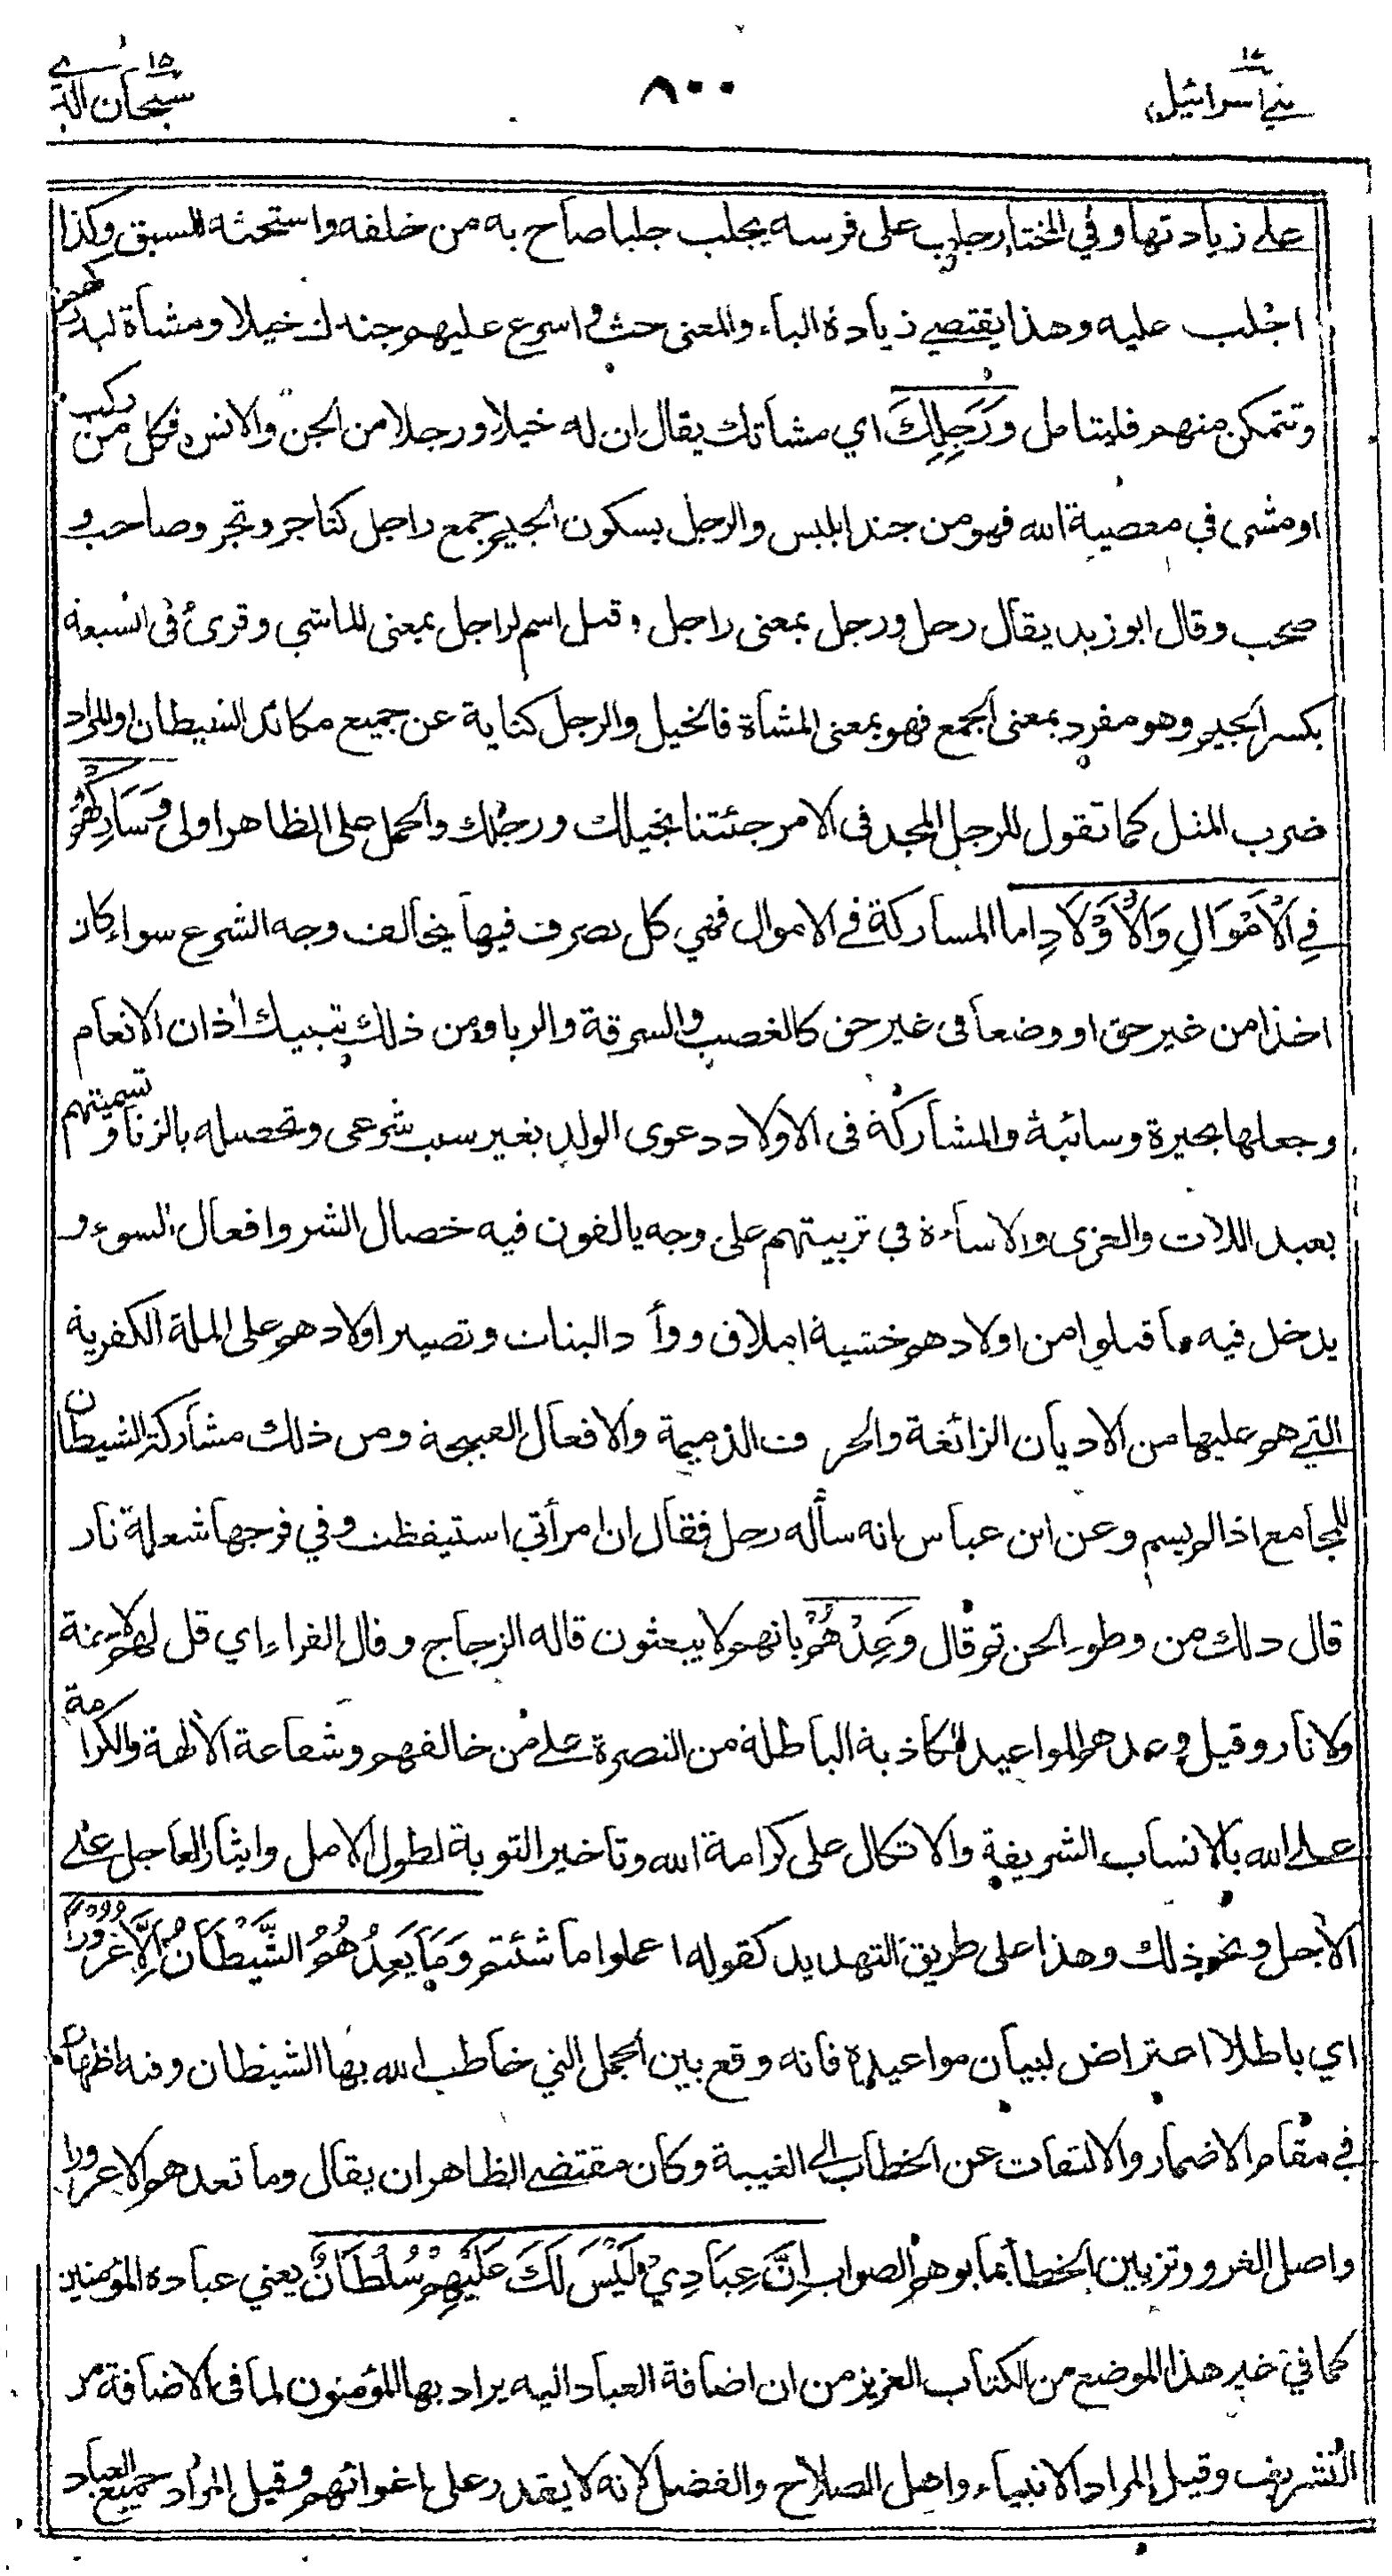 ١٧
بني اسرائيل
٨٠٠
١٥
سبحان الذي
على زيادتها وفي المختار جلب على فرسه يجلب جلبا صاح به من خلفه واستحثه للسبق وكذا
اجلب عليه وهذا يقتضي زيادة الباء والمعنى حث واسرع عليهم جندك خيلا ومشاة لتدركهم
وتتمكن منهم فليتامل وَرَجِلِكَ اي مشاتك يقال ان له خيلا ورجلا من الجن والانس فكل من ركب
او مشى في معصية الله فهو من جند ابليس والرجل بسكون الجيم جمع راجل كتاجر وتجر وصاحب و
صحب وقال ابو زيد يقال رجل ورجل بمعنى راجل وقيل اسم لراجل بمعنى للماشي وقرئ في السبعة
بكسر الجيم وهو مفرد بمعنى الجمع فهو بمعنى المشاة فالخيل والرجل كناية عن جميع مكائد الشيطان او المراد
ضرب المثل كما تقول للرجل المجد في الامر جئتنا بخيلك ورجلك والحمل على الظاهر اولى وَشَارِكْهُمْ
فِي الْأَمْوَالِ وَالْأَوْلَادِ اما المشاركة في الاموال فهي كل تصرف فيها يخالف وجه الشرع سواء كان
اخذا من غير حق او وضعا في غير حق كالغصب والسرقة والربا ومن ذلك تبتيك اذان الانعام
وجعلها بحيرة وسائبة والمشاركة في الاولاد دعوى الولد بغير سبب شرعي وتحصيله بالزنا وتسميتهم
بعبد اللات والعزى والاساءة في تربيتهم على وجه يالفون فيه خصال الشر وافعال السوء و
يدخل فيه ما قتلوا من اولادهم خشية املاق ووأد البنات وتصيير اولادهم على الملة الكفرية
التي هم عليها من الاديان الزائغة والحرف الذميمة والافعال القبيحة ومن ذلك مشاركة الشيطان
للمجامع اذا لم يسم وعن ابن عباس انه سأله رجل فقال ان امرأتي استيقظت وفي فرجها شعلة نار
قال ذلك من وطء الجن ثم قال وَعِدْهُمْ بانهم لا يبعثون قاله الزجاج وقال الفراء اي قل لهم لا جنة
ولا نار وقيل وعدهم المواعيد الكاذبة الباطلة من النصرة على من خالفهم وشفاعة الألهة والكرامة
على الله بالانساب الشريفة والاتكال على كرامة الله وتاخير التوبة لطول الامل وايثار العاجل على
الأجل ونحو ذلك وهذا على طريق التهديد كقوله اعملوا ما شئتم وَمَا يَعِدُهُمُ الشَّيْطَانُ إِلَّا غُرُورًا
اي باطلا اعتراض لبيان مواعيده فانه وقع بين الجمل التي خاطب الله بها الشيطان وفيه اظهار
في مقام الاضمار والالتفات عن الخطاب الى الغيبة وكان مقتضى الظاهر ان يقال وما تعدهم الا غرورا
واصل الغرور تزيين الخطأ بما يوهم الصواب إِنَّ عِبَادِي لَيْسَ لَكَ عَلَيْهِمْ سُلْطَانٌ يعني عباده المؤمنين
كما في غير هذا الموضع من الكتاب العزيز من ان اضافة العباد اليه يراد بها المؤمنون لما في الاضافة من
التشريف وقيل المراد الانبياء واهل الصلاح والفضل لانه لا يقدر على اغوائهم وقيل المراد جميع العباد